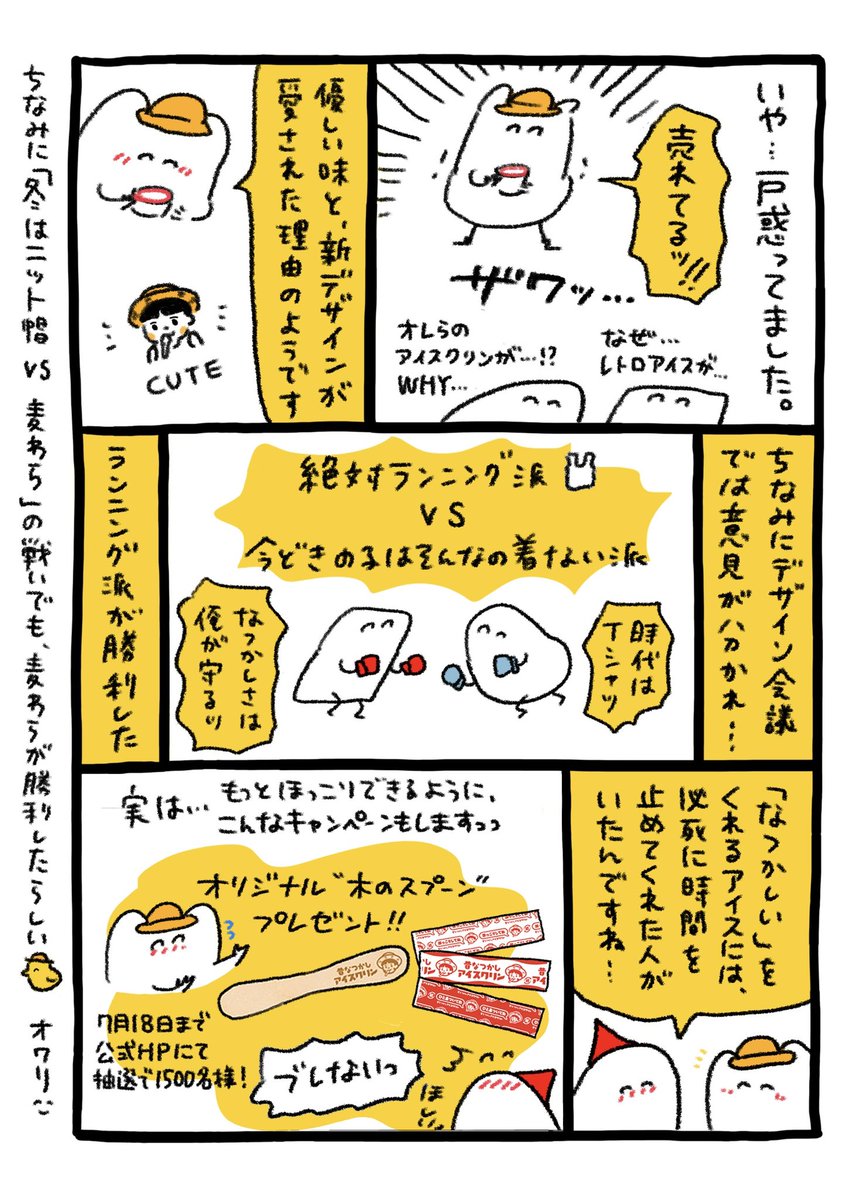 いや…戸惑ってました。
売れてるッ!!
ザワッ…
なぜ…
レトロアイスが…
オレらの
アイスクリンが…!?
WHY…
優しい味と、新デザインが
愛された理由のようです
CUTE
ちなみにデザイン会議
では意見がハカかれ…
絶対ランニング派
VS
今どきの子はそんなの着ない派
時代は
Tシャツ
なつかしさは
俺が守るッ
ランニング派が勝利した
「なつかしい」を
くれるアイスには、
必死に時間を
止めてくれた人が
いたんですね…
実は…
もっとほっこりできるように、
こんなキャンペーンもしますっっ
オリジナル"木のスプーン"
プレゼント!!
昔なつかし
アイスクリン
昔なつかし
アイスクリン
7月18日まで
公式HPにて
抽選で1500名様!
ブレないっ
ほっ
ちなみに「冬はニット帽 VS 麦わら」の戦いでも、麦わらが勝利したらしい オワリ